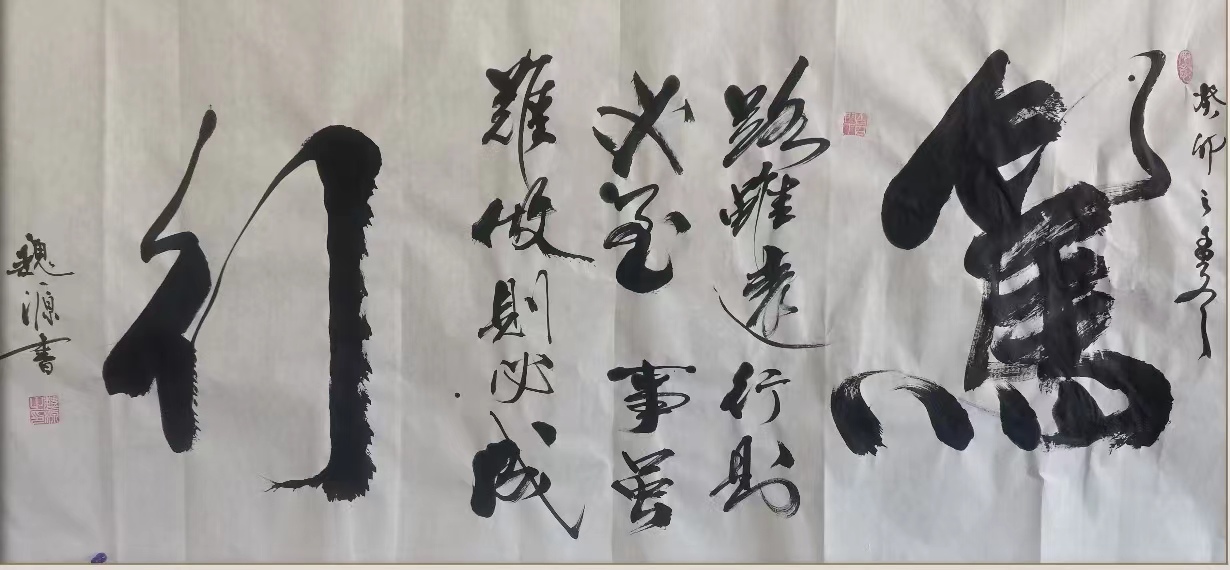 癸卯之夏
篤
路雖遠行则
必至事虽
難做则必成
行
魏源書